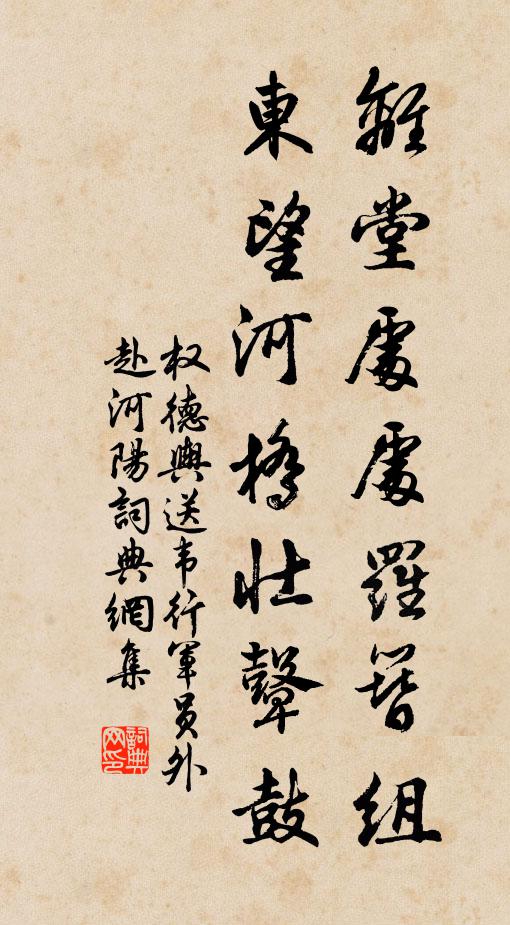 離堂處處羅簪組
東望河橋壯鼙鼓
权德輿送韦行軍员外
赴河陽詞典網集
詞典
网印